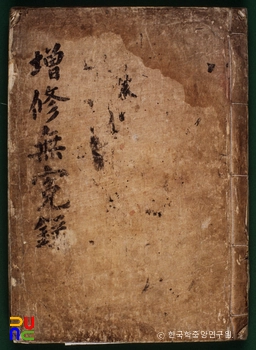 增修無寃録
© 한국학중앙연구원